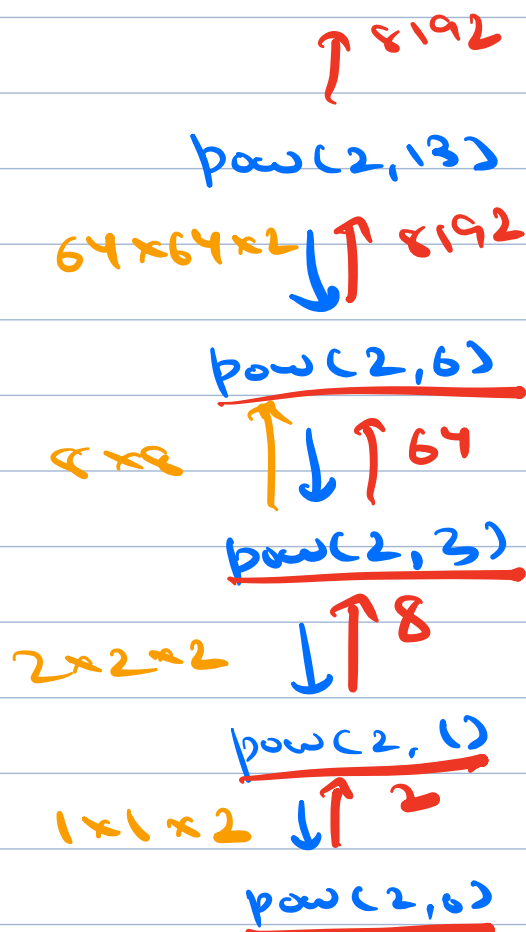 8192
pow(2,13)
64×64×2 8192
pow(2,6)
8×8 64
pow(2,3)
2×2×2 8
pow(2,1)
1×1×2 2
pow(2,0)